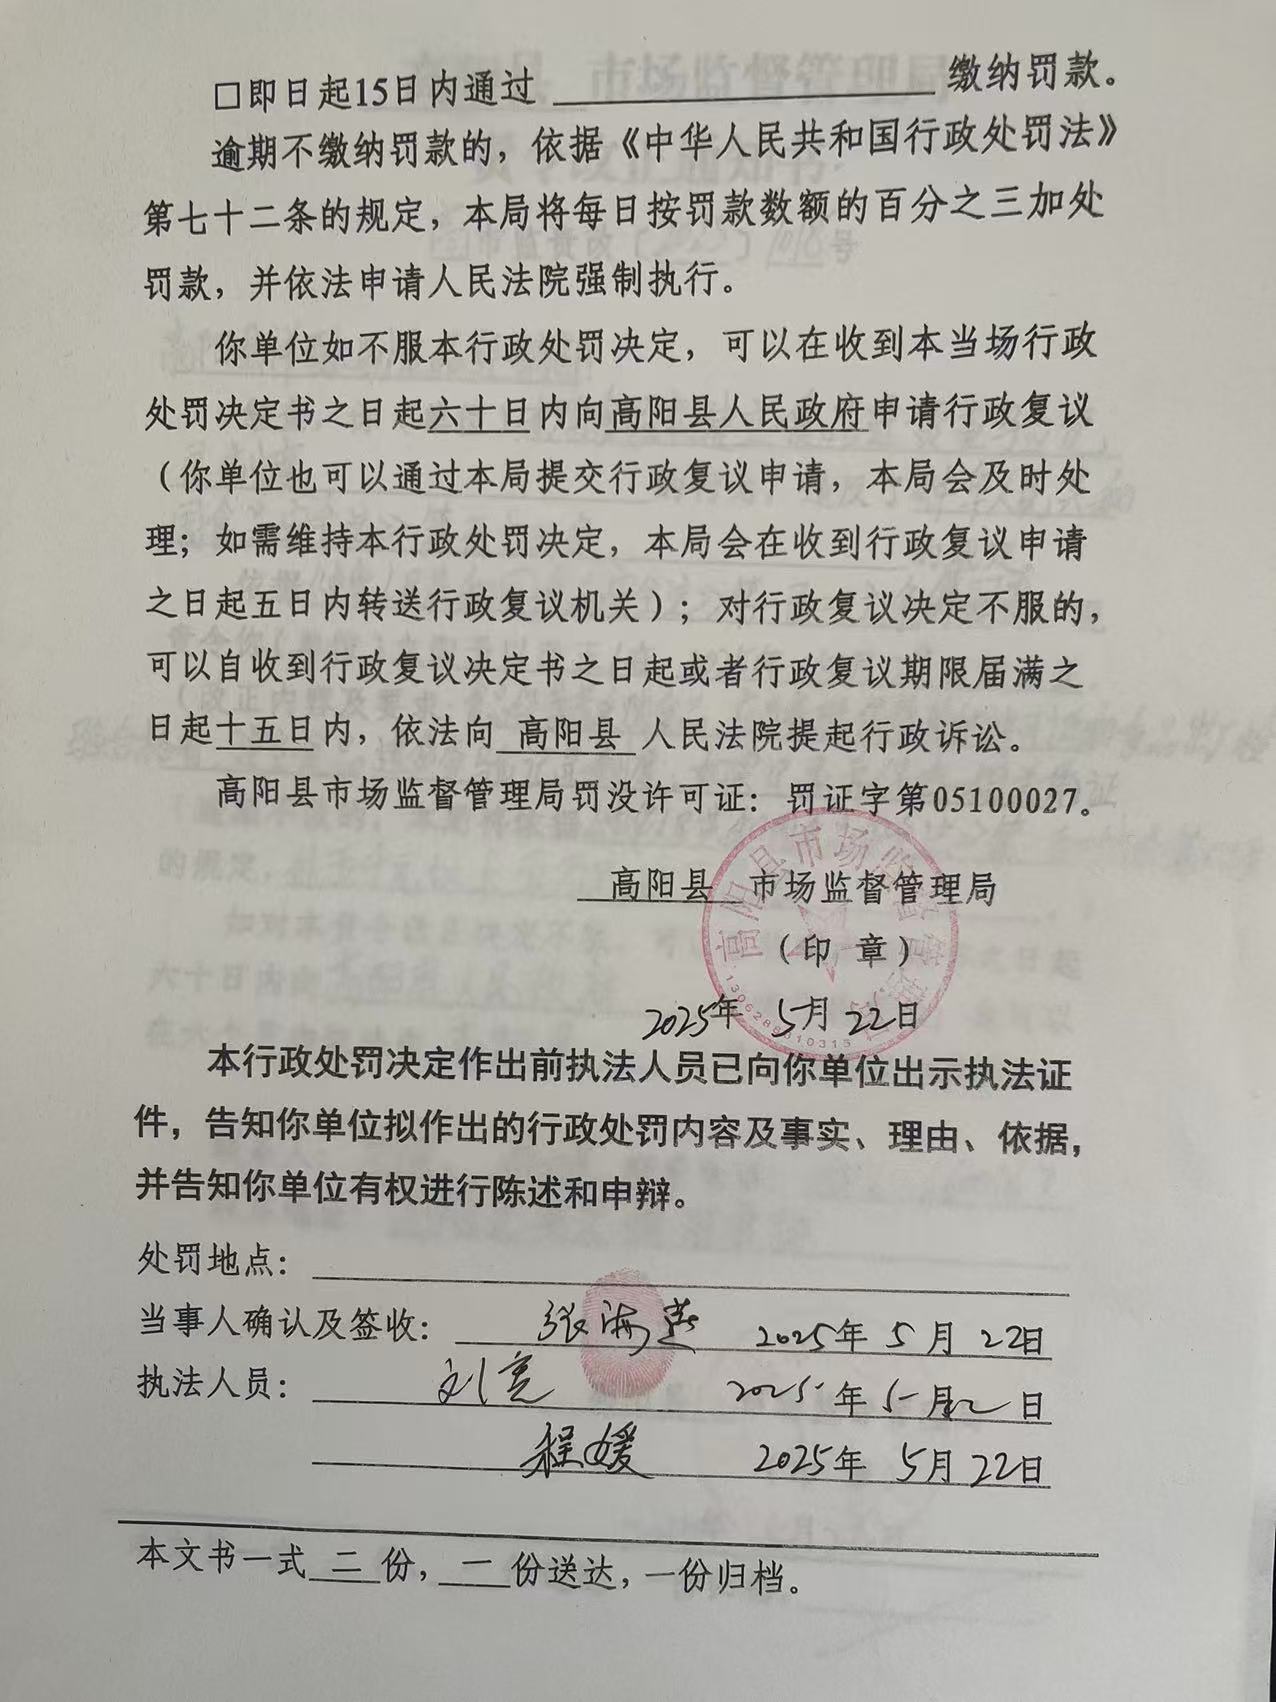 □即日起15日内通过 缴纳罚款。
逾期不缴纳罚款的，依据《中华人民共和国行政处罚法》
第七十二条的规定，本局将每日按罚款数额的百分之三加处
罚款，并依法申请人民法院强制执行。
你单位如不服本行政处罚决定，可以在收到本当场行政
处罚决定书之日起六十日内向高阳县人民政府申请行政复议
（你单位也可以通过本局提交行政复议申请，本局会及时处
理；如需维持本行政处罚决定，本局会在收到行政复议申请
之日起五日内转送行政复议机关）；对行政复议决定不服的，
可以自收到行政复议决定书之日起或者行政复议期限届满之
日起十五日内，依法向 高阳县 人民法院提起行政诉讼。
高阳县市场监督管理局罚没许可证：罚证字第05100027。
高阳县 市场监督管理局
（印 章）
2025年 5月 22日
本行政处罚决定作出前执法人员已向你单位出示执法证
件，告知你单位拟作出的行政处罚内容及事实、理由、依据，
并告知你单位有权进行陈述和申辩。
处罚地点：
当事人确认及签收： 张海燕 2025年 5月 22日
执法人员： 刘亮 2025年 5月22日
程媛 2025年 5月22日
本文书一式 二 份， 一 份送达，一份归档。
高阳县市场监督管理局